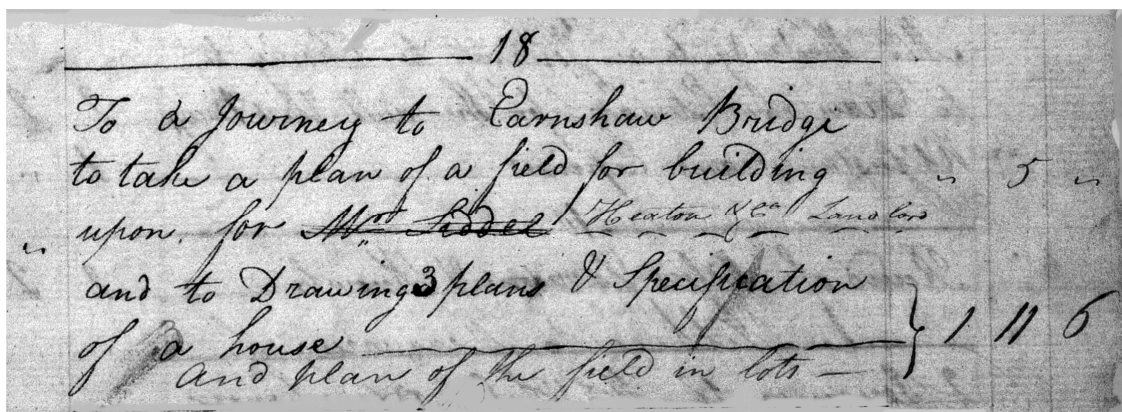 18
To a Journey to Earnshaw Bridge
to take a plan of a field for building " 5 "
upon for Mrs Siddel Heaton & Co Landlord
and to Drawing 3 plans & Specification
of a house 1 11 6
and plan of the field in lots —